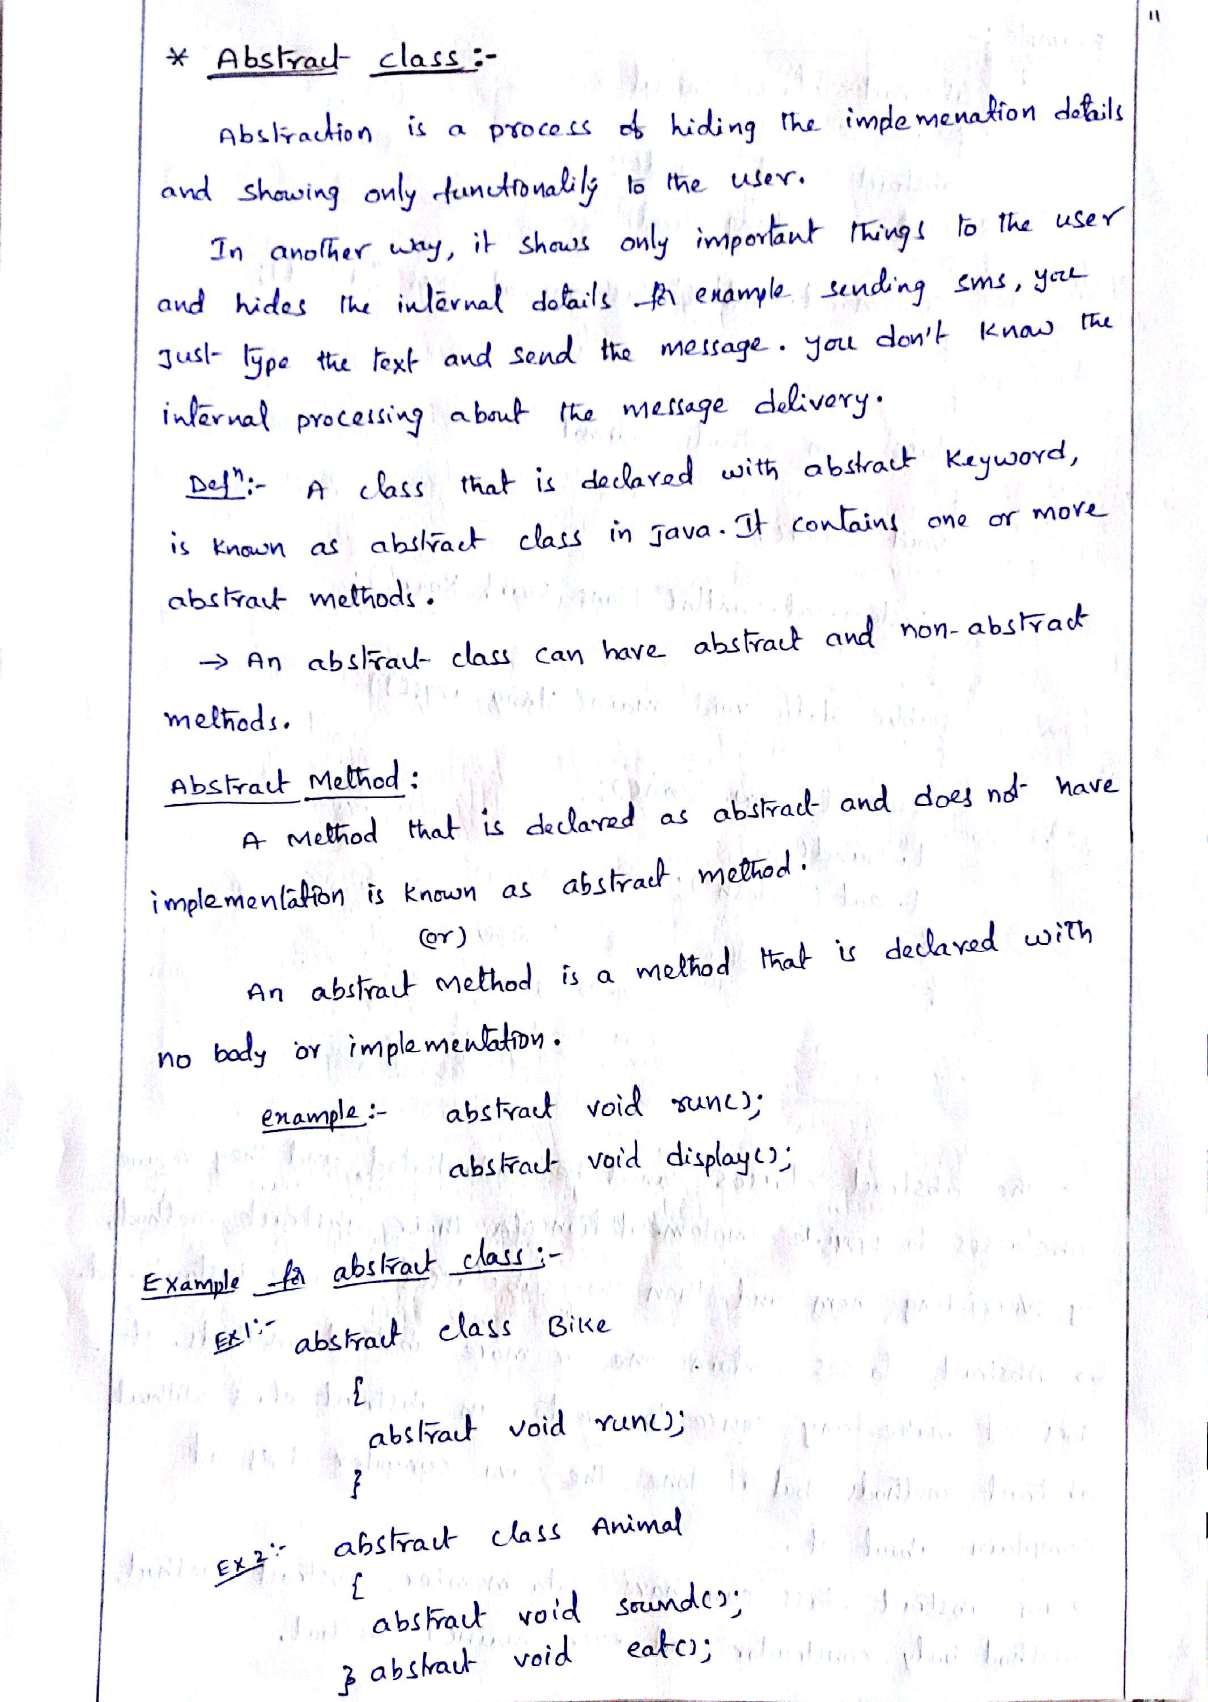 11
* Abstract class :-
Abstraction is a process of hiding the implemenation details
and showing only functionality to the user.
In another way, it shows only important things to the user
and hides the internal details for example sending sms, you
Just type the text and send the message. you don't know the
internal processing about the message delivery.
Defⁿ:- A class that is declared with abstract keyword,
is known as abstract class in Java. It contains one or more
abstract methods.
→ An abstract class can have abstract and non-abstract
methods.
Abstract Method :
A Method that is declared as abstract and does not have
implementation is known as abstract method.
(or)
An abstract method is a method that is declared with
no body or implementation.
example :- abstract void run();
abstract void display();
Example for abstract class :-
Ex1:- abstract class Bike
{
abstract void run();
}
Ex2:- abstract class Animal
{
abstract void sound();
} abstract void eat();